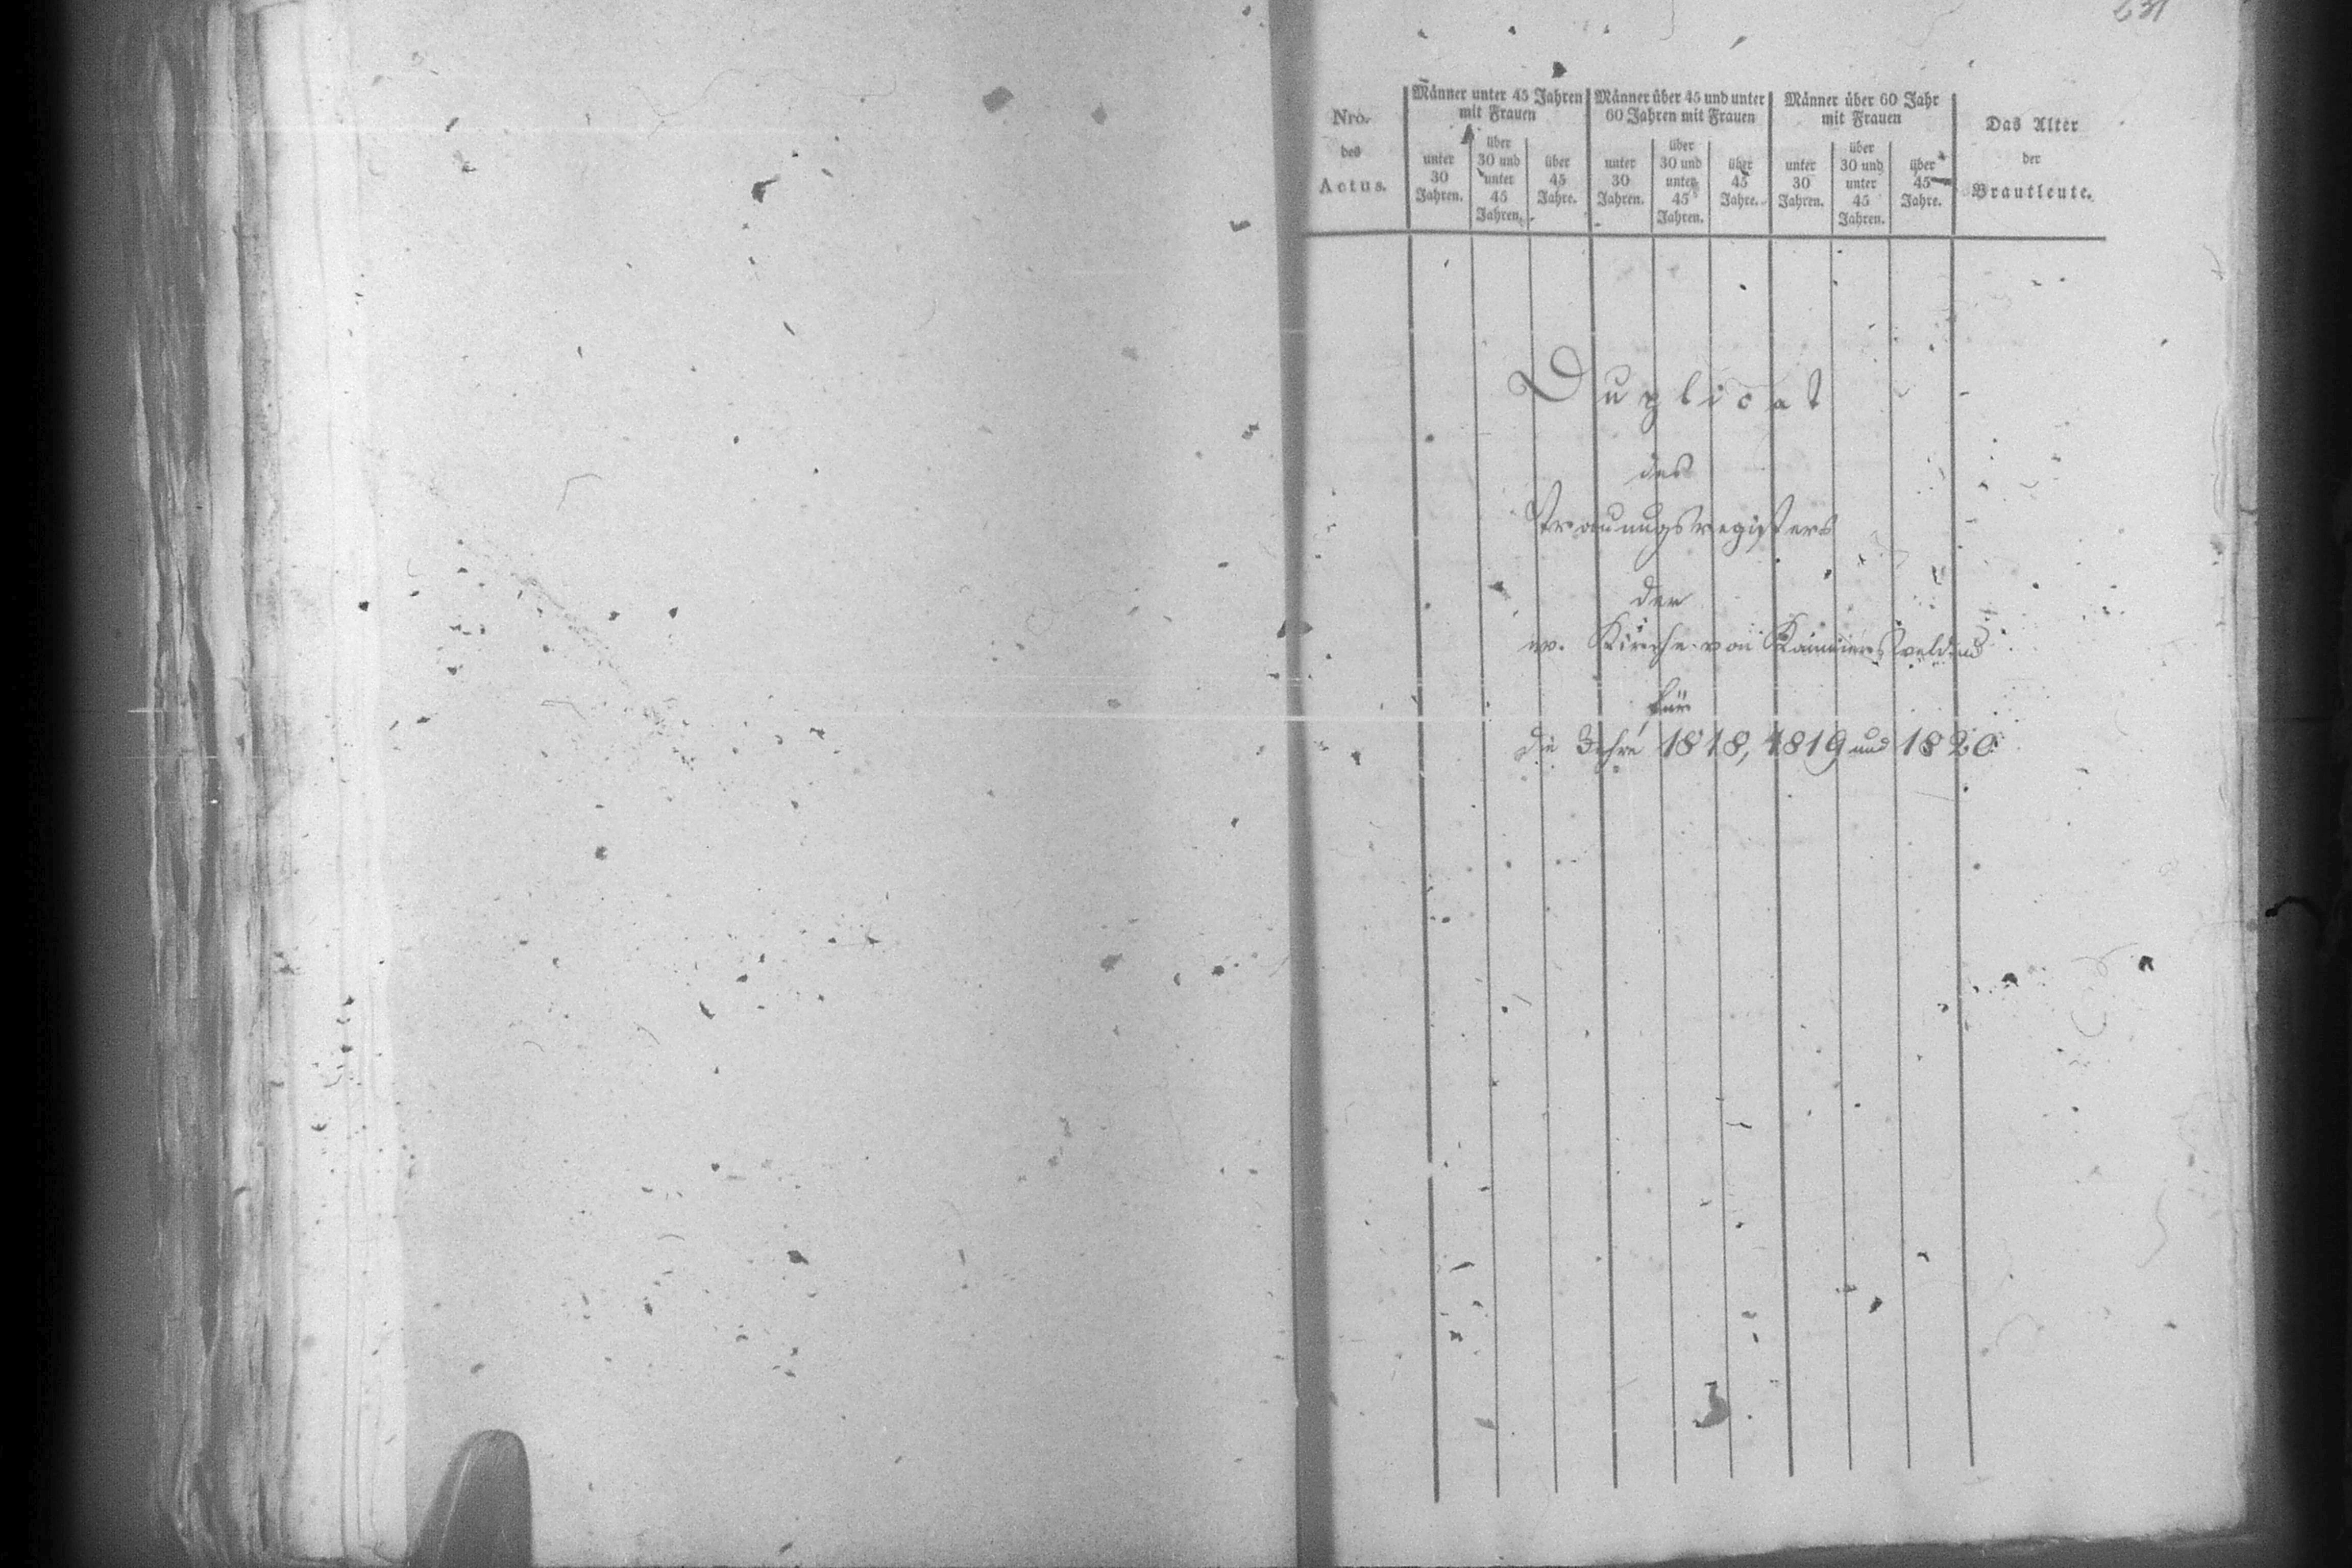 Nro.
des
Actus.
Männer unter 45 Jahren
mit Frauen
unter
30
Jahren.
über
30 und
unter
45
Jahren.
über
45
Jahre.
Männer über 45 und unter
60 Jahren mit Frauen
unter
30
Jahren.
über
30 und
unter
45
Jahren.
über
45
Jahre.
Männer über 60 Jahr
mit Frauen
unter
30
Jahren.
über
30 und
unter
45
Jahren.
über
45
Jahre.
Das Alter
der
Brautleute.
Duplicat
des
Trauungsregisters
der
ev. Kirche von
für
die Jahre 1818, 1819 und 1820